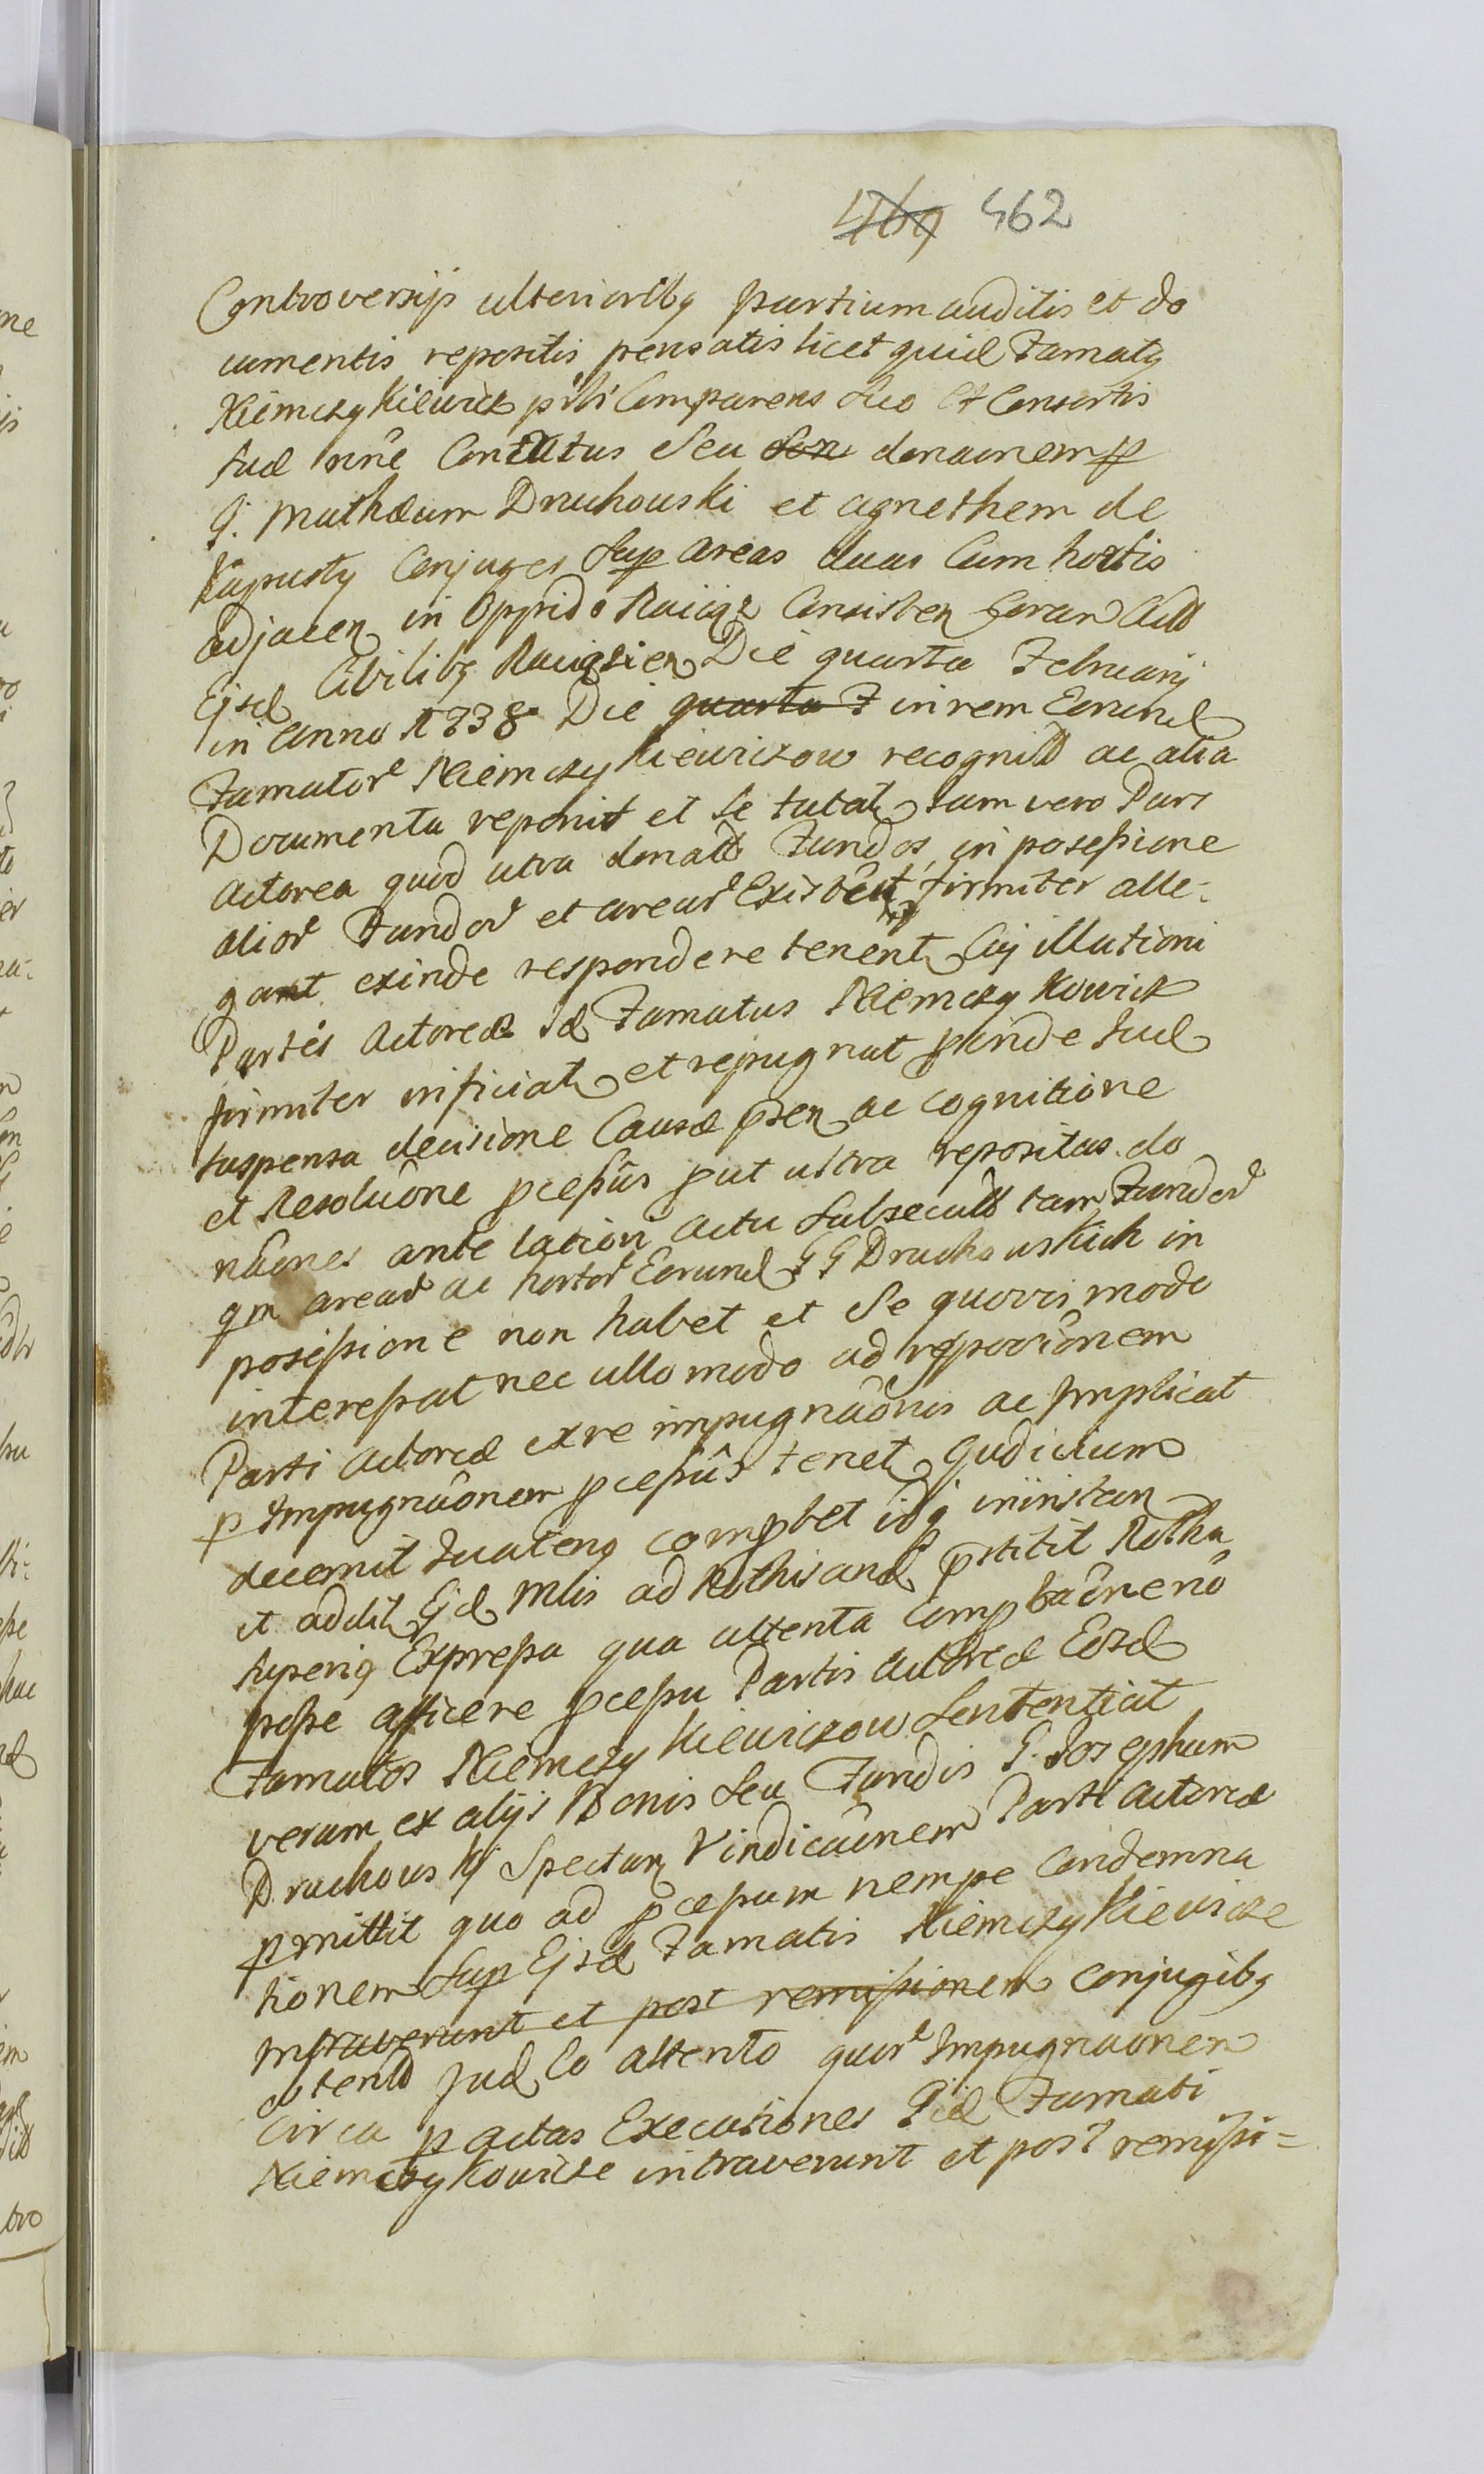 469 462
Controversijs ulterioribq partium auditis et do
cumentis repositis pensatis licet quid Famatq
Niemczykiewicz pñti Comparens suo et Consortis
suæ nñe Contractus seu don donãonem p
G. Mathæum Druchouski et agnethem de
Kapusty Conjuges Sup areas duas Cum hortis
adjacen in Oppido Raiigr Consisten Coram Act
Ejsd Civilibq Raigrien Die quarta Februarij
in Anno 1738 Die quarta F in rem Eorund
Famator Niemczykiewiczow recognit ac alia
Documenta reponit et se tutat tam vero Pars
Actorea quod utra donat Fundos in posessione
alior Fundor et arear Existent firmiter alle-
gant exinde respondere tenent Cuj illationi
Partis Actoreæ Id Famatus Niemczykowicz
firmiter inficiat et repugnat proinde Jud
suspensa decisione Causæ prãen ac cognitione
et Resolutione pcessus put ultra repositas do
nãones ante lation actu subsecut tam Fundor
qm arear ac hortor Eorund GG Druchouskich in
posessione non habet et se quovis modo
interessat nec ullo modo ad reponõnem
Parti Actoreæ ex re impugnãonis ac Implicat
p Impugnãonem pcessûs tenet Judicium
decernit Quatenq comprbet idq ininstan
et addit Ejd Mlis ad Rothisand pstitit Rotha
superiq Expressa qua attenta Comprbãone nõ
posse afficere pcessu Partis Actoreæ Eosd
Famatos Niemczykiewiczow Sententiat
verum ex alijs Bonis seu Fundis G. Josephum
Druchouskj Spectan Vindicãonem Parti Actoreæ
pmittit quo ad pcessum nempe Condemna
tionem Sup Ejsd Famatis Niemczykiewicze
intraverunt et post remissionem conjugibq
obtent Jud Eo attento quor Impugnãonem
Circa p actas Executiones Iid Famati
Niemczykowicze intraverunt et post remissi=